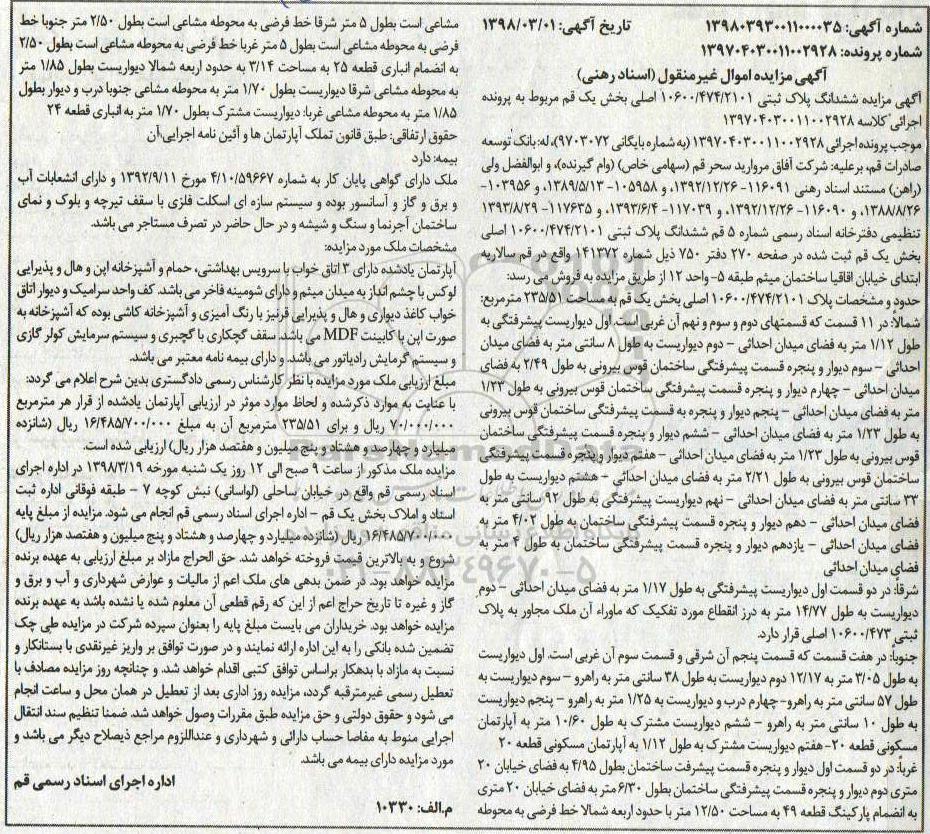 شماره آگهی: ۱۳۹۸۰۳۹۳۰۰۱۱۰۰۰۰۳۵ تاریخ آگهی: ۱۳۹۸/۰۳/۰۱
شماره پرونده: ۱۳۹۷۰۴۰۳۰۰۱۱۰۰۲۹۲۸
آگهی مزایده اموال غیرمنقول (اسناد رهنی)
آگهی مزایده ششدانگ پلاک ثبتی ۱۰۶۰۰/۴۷۴/۲۱۰۱ اصلی بخش یک قم مربوط به پرونده
اجرائی کلاسه ۱۳۹۷۰۴۰۳۰۰۱۱۰۰۲۹۲۸
موجب پرونده اجرائی ۱۳۹۷۰۴۰۳۰۰۱۱۰۰۲۹۲۸ (به شماره بایگانی ۹۷۰۳۰۷۲)، له: بانک توسعه
صادرات قم، برعلیه: شرکت آفاق مروارید سحر قم (سهامی خاص) (وام گیرنده)، و ابوالفضل ولی
(راهن) مستند اسناد رهنی ۱۱۶۰۹۱- ۱۳۹۲/۱۲/۲۶، و ۱۰۵۹۵۸- ۱۳۸۹/۵/۱۳، و ۱۰۳۹۵۶-
۱۳۸۸/۸/۲۶، و ۱۱۶۰۹۰- ۱۳۹۲/۱۲/۲۶، و ۱۱۷۰۳۹- ۱۳۹۳/۶/۴، و ۱۱۷۶۳۵- ۱۳۹۳/۸/۲۹
تنظیمی دفترخانه اسناد رسمی شماره ۵ قم ششدانگ پلاک ثبتی ۱۰۶۰۰/۴۷۴/۲۱۰۱ اصلی
بخش یک قم ثبت شده در صفحه ۲۷۰ دفتر ۷۵۰ ذیل شماره ۱۴۱۳۷۲ واقع در قم سالاریه
ابتدای خیابان اقاقیا ساختمان میثم طبقه ۵- واحد ۱۲ از طریق مزایده به فروش می رسد:
حدود و مشخصات پلاک ۱۰۶۰۰/۴۷۴/۲۱۰۱ اصلی بخش یک قم به مساحت ۲۳۵/۵۱ مترمربع:
شمالاً: در ۱۱ قسمت که قسمتهای دوم و سوم و نهم آن غربی است. اول دیواریست پیشرفتگی به
طول ۱/۱۲ متر به فضای میدان احداثی - دوم دیواریست به طول ۸ سانتی متر به فضای میدان
احداثی - سوم دیوار و پنجره قسمت پیشرفتگی ساختمان قوس بیرونی به طول ۲/۴۹ به فضای
میدان احداثی - چهارم دیوار و پنجره قسمت پیشرفتگی ساختمان قوس بیرونی به طول ۱/۲۳
متر به فضای میدان احداثی - پنجم دیوار و پنجره به قسمت پیشرفتگی ساختمان قوس بیرونی
به طول ۱/۲۳ متر به فضای میدان احداثی - ششم دیوار و پنجره قسمت پیشرفتگی ساختمان
قوس بیرونی به طول ۱/۲۳ متر به فضای میدان احداثی - هفتم دیوار و پنجره قسمت پیشرفتگی
ساختمان قوس بیرونی به طول ۲/۲۱ متر به فضای میدان احداثی - هشتم دیواریست به طول
۳۳ سانتی متر به فضای میدان احداثی - نهم دیواریست پیشرفتگی به طول ۹۲ سانتی متر به
فضای میدان احداثی - دهم دیوار و پنجره قسمت پیشرفتگی ساختمان به طول ۴/۰۲ متر به
فضای میدان احداثی - یازدهم دیوار و پنجره قسمت پیشرفتگی ساختمان به طول ۴ متر به
فضای میدان احداثی
شرقاً: در دو قسمت اول دیواریست پیشرفتگی به طول ۱/۱۷ متر به فضای میدان احداثی - دوم
دیواریست به طول ۱۴/۷۷ متر به درز انقطاع مورد تفکیک که ماوراء آن ملک مجاور به پلاک
ثبتی ۱۰۶۰۰/۴۷۳ اصلی قرار دارد.
جنوباً: در هفت قسمت که قسمت پنجم آن شرقی و قسمت سوم آن غربی است. اول دیواریست
به طول ۳/۰۵ متر به ۱۲/۱۷ دوم دیواریست به طول ۳۸ سانتی متر به راهرو - سوم دیواریست به
طول ۵۷ سانتی متر به راهرو- چهارم درب و دیواریست به ۱/۲۵ متر به راهرو - پنجم دیواریست
به طول ۱۰ سانتی متر به راهرو - ششم دیواریست مشترک به طول ۱۰/۶۰ متر به آپارتمان
مسکونی قطعه ۲۰- هفتم دیواریست مشترک به طول ۱/۱۲ به آپارتمان مسکونی قطعه ۲۰
غرباً: در دو قسمت اول دیوار و پنجره قسمت پیشرفت ساختمان بطول ۴/۹۵ به فضای خیابان ۲۰
متری دوم دیوار و پنجره قسمت پیشرفتگی ساختمان بطول ۶/۳۰ متر به فضای خیابان ۲۰ متری
به انضمام پارکینگ قطعه ۴۹ به مساحت ۱۲/۵۰ متر با حدود اربعه شمالا خط فرضی به محوطه
مشاعی است بطول ۵ متر شرقا خط فرضی به محوطه مشاعی است بطول ۲/۵۰ متر جنوبا خط
فرضی به محوطه مشاعی است بطول ۵ متر غربا خط فرضی به محوطه مشاعی است بطول ۲/۵۰
به انضمام انباری قطعه ۲۵ به مساحت ۳/۱۴ به حدود اربعه شمالا دیواریست بطول ۱/۸۵ متر
به محوطه مشاعی شرقا دیواریست بطول ۱/۷۰ متر به محوطه مشاعی جنوبا درب و دیوار بطول
۱/۸۵ متر به محوطه مشاعی غربا: دیواریست مشترک بطول ۱/۷۰ متر به انباری قطعه ۲۴
حقوق ارتفاقی: طبق قانون تملک آپارتمان ها و آئین نامه اجرایی آن
بیمه: دارد
ملک دارای گواهی پایان کار به شماره ۴/۱۰/۵۹۶۶۷ مورخ ۱۳۹۲/۹/۱۱ و دارای انشعابات آب
و برق و گاز و آسانسور بوده و سیستم سازه ای اسکلت فلزی با سقف تیرچه و بلوک و نمای
ساختمان آجرنما و سنگ و شیشه و در حال حاضر در تصرف مستاجر می باشد.
مشخصات ملک مورد مزایده:
آپارتمان یادشده دارای ۳ اتاق خواب با سرویس بهداشتی، حمام و آشپزخانه اپن و هال و پذیرایی
لوکس با چشم انداز به میدان میثم و دارای شومینه فاخر می باشد. کف واحد سرامیک و دیوار اتاق
خواب کاغذ دیواری و هال و پذیرایی قرنیز با رنگ آمیزی و آشپزخانه کاشی بوده که آشپزخانه به
صورت اپن با کابینت MDF می باشد. سقف گچکاری با گچبری و سیستم سرمایش کولر گازی
و سیستم گرمایش رادیاتور می باشد. و دارای بیمه نامه معتبر می باشد.
مبلغ ارزیابی ملک مورد مزایده با نظر کارشناس رسمی دادگستری بدین شرح اعلام می گردد:
با عنایت به موارد ذکرشده و لحاظ موارد موثر در ارزیابی آپارتمان یادشده از قرار هر مترمربع
۷۰/۰۰۰/۰۰۰ ریال و برای ۲۳۵/۵۱ مترمربع آن به مبلغ ۱۶/۴۸۵/۷۰۰/۰۰۰ ریال (شانزده
میلیارد و چهارصد و هشتاد و پنج میلیون و هفتصد هزار ریال) ارزیابی شده است.
مزایده ملک مذکور از ساعت ۹ صبح الی ۱۲ روز یک شنبه مورخه ۱۳۹۸/۳/۱۹ در اداره اجرای
اسناد رسمی قم واقع در خیابان ساحلی (لواسانی) نبش کوچه ۷ - طبقه فوقانی اداره ثبت
اسناد و املاک بخش یک قم - اداره اجرای اسناد رسمی قم انجام می شود. مزایده از مبلغ پایه
۱۶/۴۸۵/۷۰۰/۰۰۰ ریال (شانزده میلیارد و چهارصد و هشتاد و پنج میلیون و هفتصد هزار ریال)
شروع و به بالاترین قیمت فروخته خواهد شد. حق الحراج مازاد بر مبلغ ارزیابی به عهده برنده
مزایده خواهد بود. در ضمن بدهی های ملک اعم از مالیات و عوارض شهرداری و آب و برق و
گاز و غیره تا تاریخ حراج اعم از این که رقم قطعی آن معلوم شده یا نشده باشد به عهده برنده
مزایده خواهد بود. خریداران می بایست مبلغ پایه را بعنوان سپرده شرکت در مزایده طی چک
تضمین شده بانکی را به این اداره ارائه نمایند و در صورت توافق بر واریز غیرنقدی با بستانکار و
نسبت به مازاد با بدهکار براساس توافق کتبی اقدام خواهد شد و چنانچه روز مزایده مصادف با
تعطیل رسمی غیرمترقبه گردد، مزایده روز اداری بعد از تعطیل در همان محل و ساعت انجام
می شود و حقوق دولتی و حق مزایده طبق مقررات وصول خواهد شد. ضمنا تنظیم سند انتقال
اجرایی منوط به مفاصا حساب دارائی و شهرداری و عنداللزوم مراجع ذیصلاح دیگر می باشد و
مورد مزایده دارای بیمه می باشد.
اداره اجرای اسناد رسمی قم
م.الف: ۱۰۳۳۰